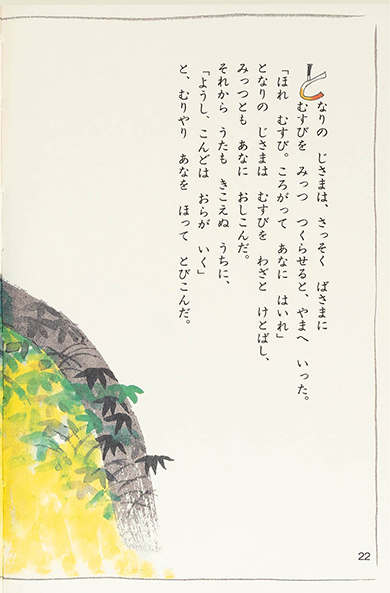 となりの　じさまは、さっそく　ばさまに
むすびを　みっつ　つくらせると、やまへ　いった。
「ほれ　むすび。ころがって　あなに　はいれ」
となりの　じさまは　むすびを　わざと　けとばし、
みっつとも　あなに　おしこんだ。
それから　うたも　きこえぬ　うちに、
「ようし、こんどは　おらが　いく」
と、むりやり　あなを　ほって　とびこんだ。
22